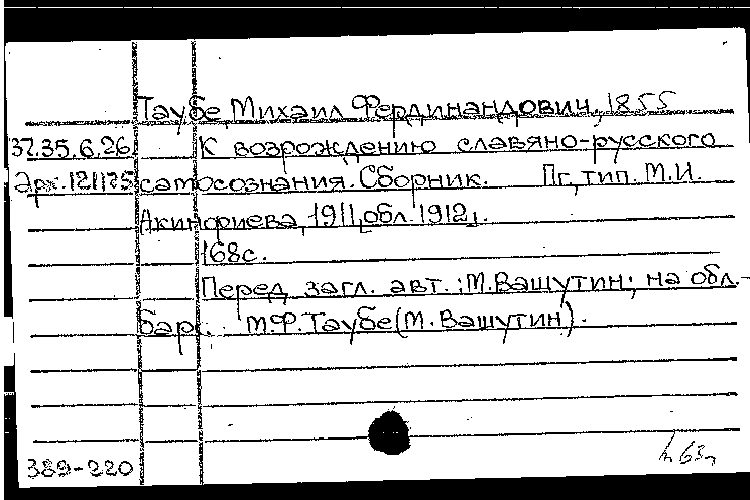 Таубе, Михаил Фердинандович, 1855
37.35.6.26 К возрождению славяно-русского
Арх.121125 самосознания. Сборник. Пг, тип. М.И.
Акинфиева, 1911, [обл. 1912].
168с.
Перед загл. авт.: М. Вашутин; на обл.-
бар. М.Ф. Таубе (М. Вашутин).
389-220